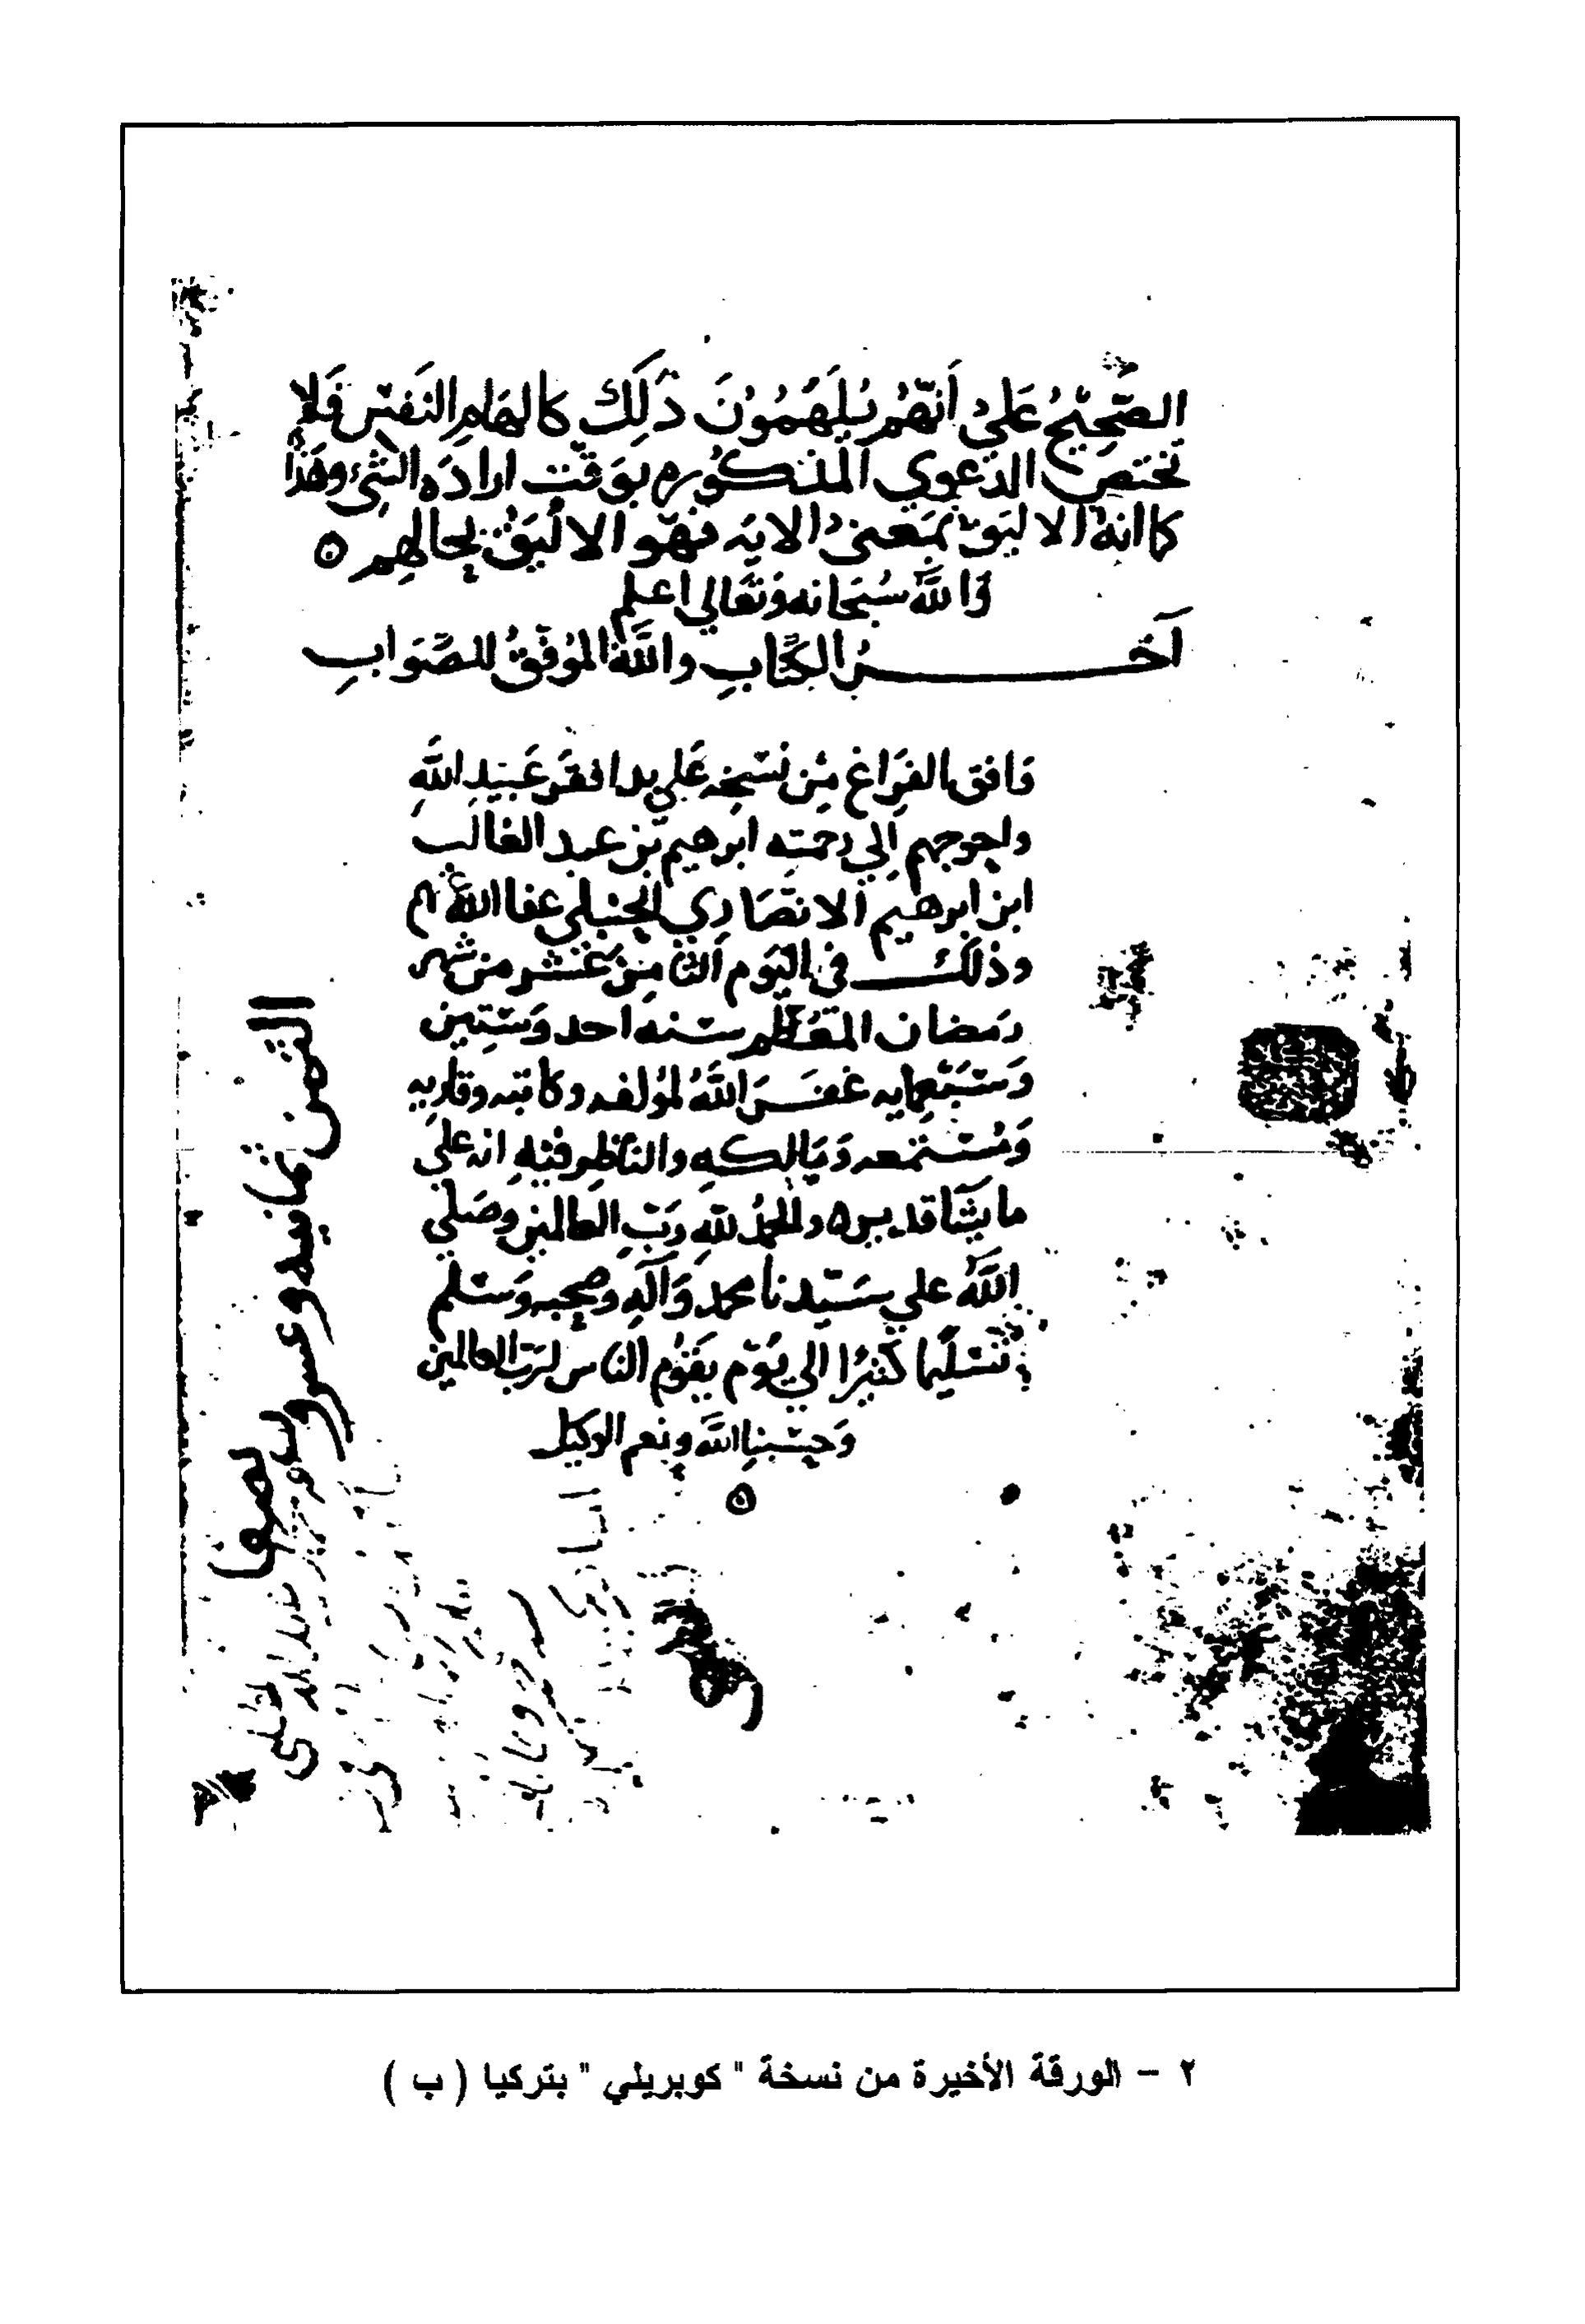 الصَّحِيحُ عَلَى أَنَّهُم يُلهَمُونَ ذَلِكَ كالهَامِ النَفَسِ فَلا
تختصَ الدعوي المذكوره بوَقت ارادَه الشيء وهَذا
كما انهُ الاليَق بمَعنى الايَه فهو الاليَقُ بحالهِم ه
وَاللَّه سُبحَانه وَتعَالي اعلم
آخِرُ الكتابِ واللَّهُ الموُفقُ للصَّوَابِ
وَافق الفَرَاغ مِن نسخِه عَلي يد افقَر عَبيدِ اللَّهِ
واحوجهم إلي رحمته ابرهيم بن عبد الغالب
ابن ابرهيم الانصَارِي الحنبلي عفا الله
وذلك في اليَوم الثامِن عَشر من شهر
رمَضان المعَظَّم سنه احد وَستِين
وَسَبعمايه غفَرَ اللَّهُ لمؤلفه وكاتبه وقاريه
وَمُستمعه وَمَالِكِه والنَاظِر فيهِ انه علَى
ما يشَآ قديرٌ ه والحمدُ للَّهِ رَبّ العَالمين وصَلي
اللَّهُ علي سَيّدنا محمد وَآلهِ وصَحبه وَسَلم
تسلِيمًا كَثيرًا الي يَوم يقوُم الناس لرَبّ العالمين
وَحسبنا اللَّه ونعم الوكيل
ه
الثمن ثمانيه وعسرو
نصفا
٢ - الورقة الأخيرة من نسخة " كوبريلي " بتركيا ( ب )